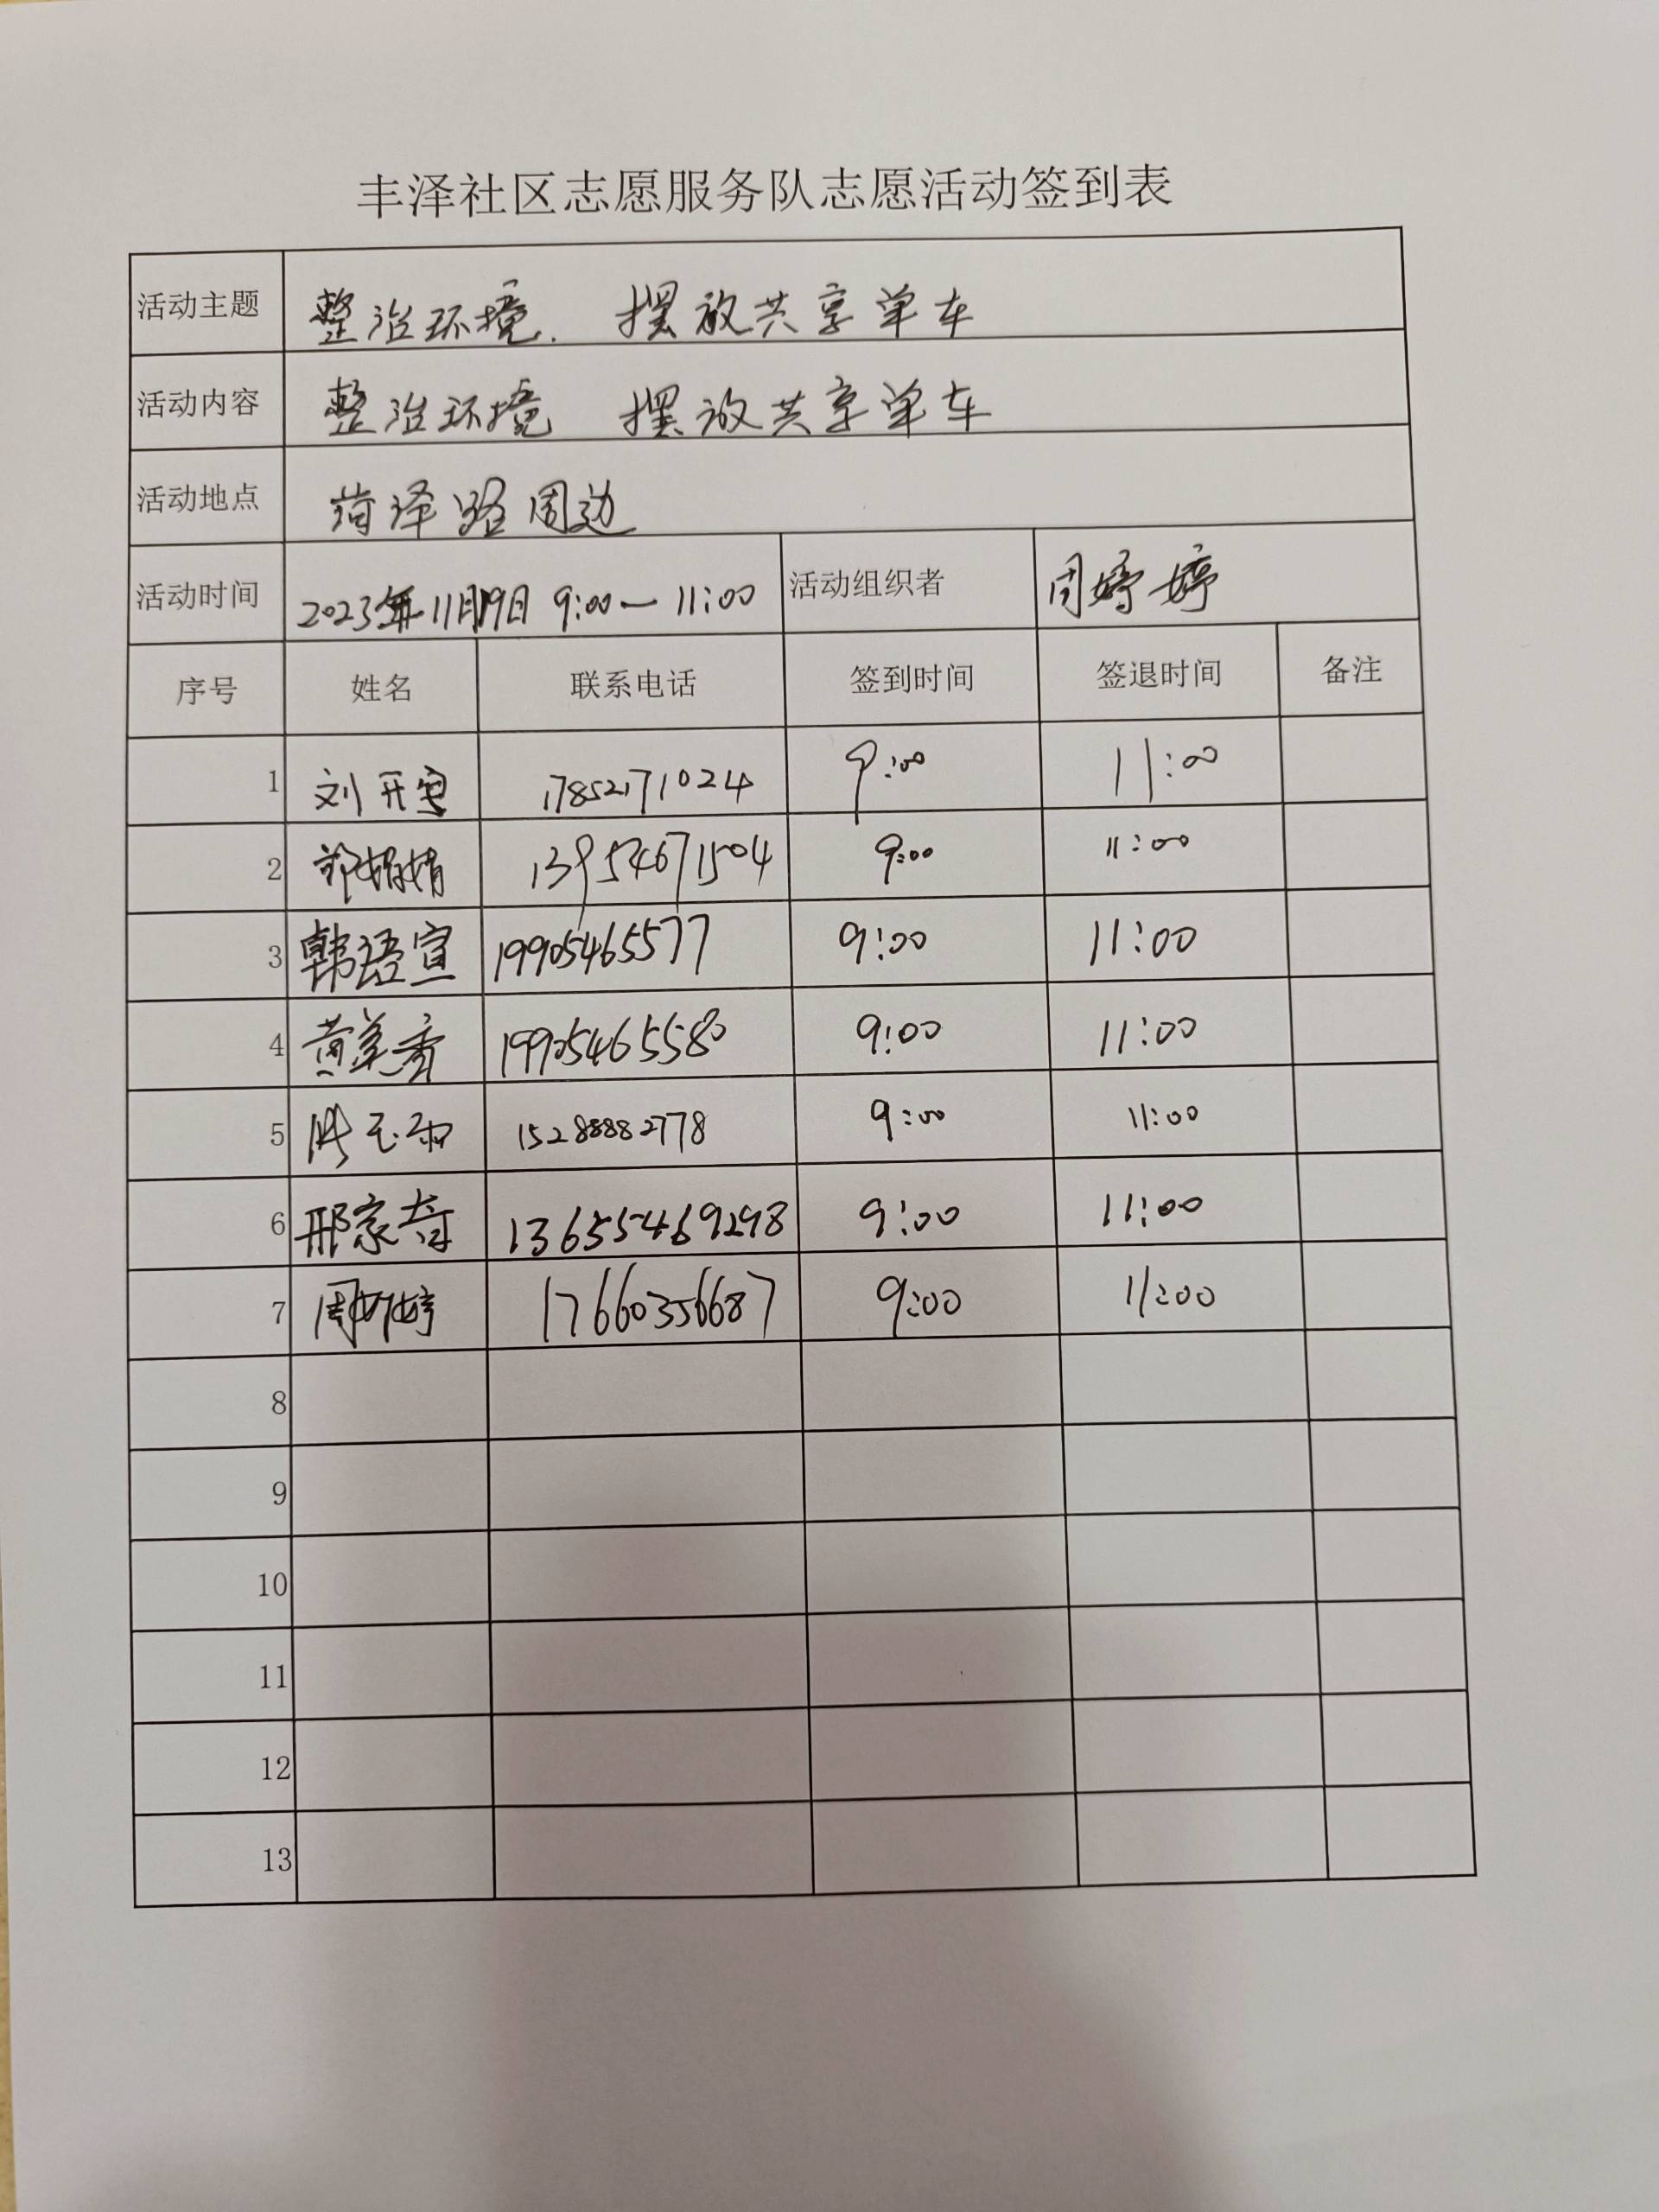 丰泽社区志愿服务队志愿活动签到表
活动主题 整治环境. 摆放共享单车
活动内容 整治环境 摆放共享单车
活动地点 菏泽路周边
活动时间 2023年11月19日 9:00—11:00 活动组织者 周婷婷
序号 姓名 联系电话 签到时间 签退时间 备注
1 刘开 17852171024 9:00 11:00
2 郭娟娟 13954671504 9:00 11:00
3 韩语宣 19905465577 9:00 11:00
4 黄美香 19905465580 9:00 11:00
5 15288882778 9:00 11:00
6 邢家奇 13655469298 9:00 11:00
7 周婷婷 17660356687 9:00 11:00
8
9
10
11
12
13